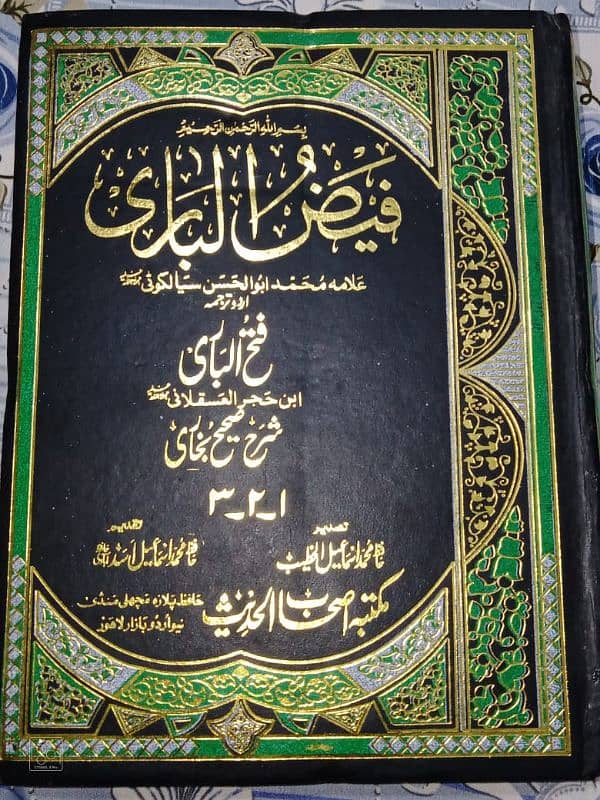 بسم الله الرحمن الرحيم
فیض الباری
علامہ محمد ابوالحسن سیالکوٹی
اردو ترجمہ
فتح الباری
ابن حجر العسقلانی
شرح صحیح بخاری
۱-۲-۳
تصدیر
حافظ محمد اسماعیل الخطیب
تقدیم
حافظ محمد اسماعیل اسد
مکتبہ اصحاب الحدیث
حافظ پلازہ مچھلی منڈی
نیو اردو بازار لاہور